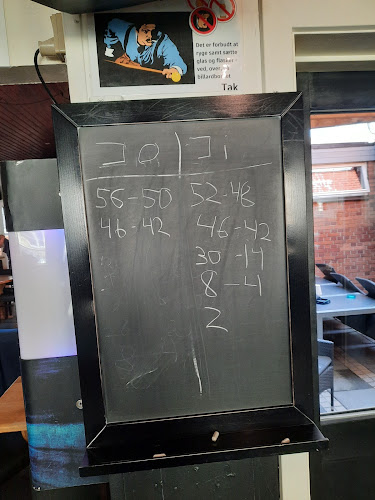 Det er forbudt at
ryge samt sætte
glas og flasker
ved, over
billardbordet
Tak
56-50 52-48
46-42 46-42
30-14
8-4
2